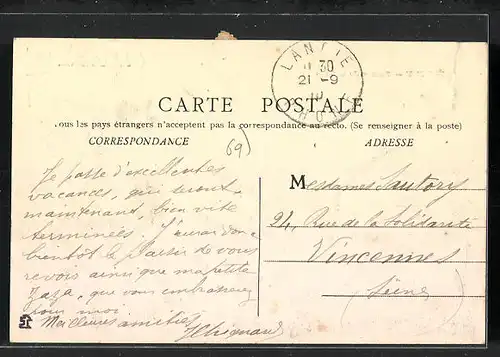 LANTIE
11 30
21 -9
10
RHONE
CARTE POSTALE
Tous les pays étrangers n'acceptent pas la correspondance au recto. (Se renseigner à la poste)
CORRESPONDANCE
ADRESSE
69)
Je passe d'excellentes
vacances, qui seront
maintenant, bien vite
terminées. J'aurai donc
bientôt le plaisir de vous
revoir ainsi que ma petite
Zaza, que vous embrasserez
pour moi
Meilleures amitiés
Mesdames Sautory
24, Rue de la Solidarité
Vincennes
(Seine)